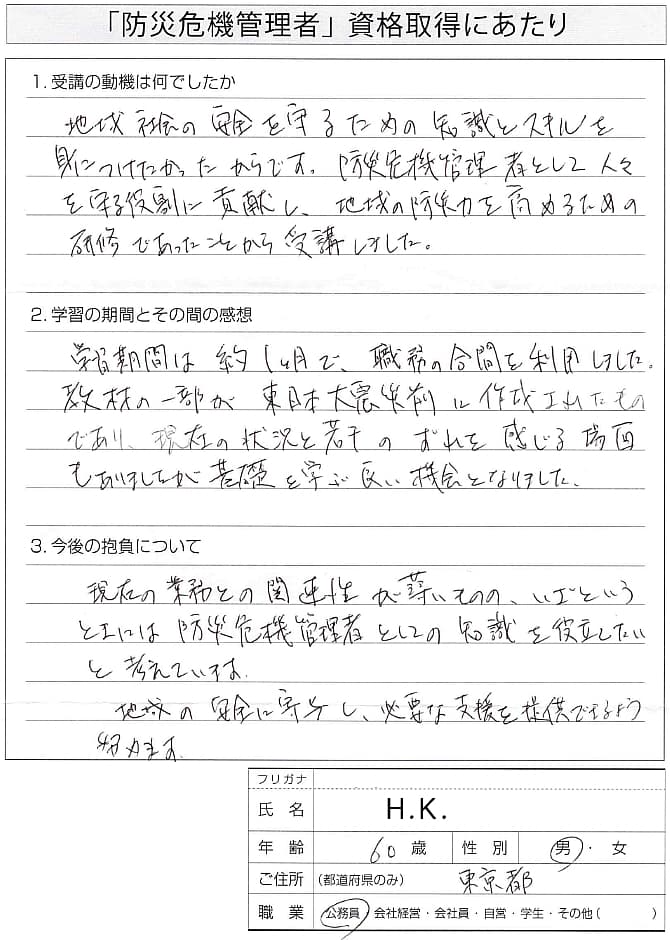 「防災危機管理者」資格取得にあたり
1. 受講の動機は何でしたか
地域社会の安全を守るための知識とスキルを
身につけたかったからです。防災危機管理者として人々
を守る役割に貢献し、地域の防災力を高めるための
研修であったことから受講しました。
2. 学習の期間とその間の感想
学習期間は約1ヶ月で、職務の合間を利用しました。
教材の一部が東日本大震災前に作成されたもの
であり、現在の状況と若干のずれを感じる場面
もありましたが基礎を学ぶ良い機会となりました。
3. 今後の抱負について
現在の業務との関連性が薄いものの、いざという
ときには防災危機管理者としての知識を役立したい
と考えています。
地域の安全に寄与し、必要な支援を提供できるよう
努めます。
フリガナ
氏名 H.K.
年齢 60歳 性別 男・女
ご住所 (都道府県のみ) 東京都
職業 公務員・会社経営・会社員・自営・学生・その他( )